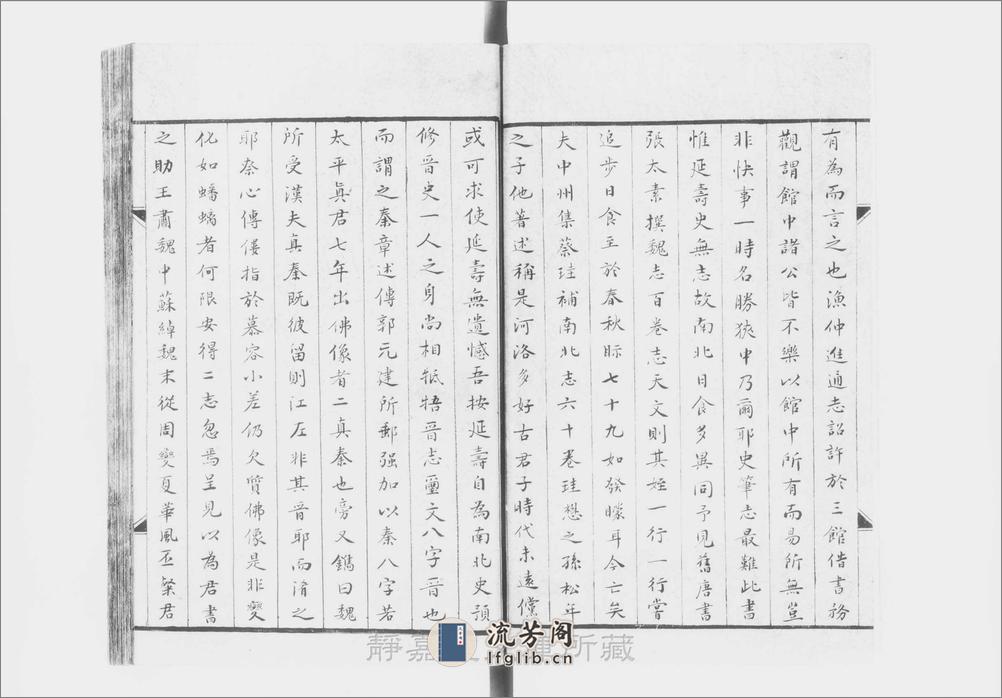 有為而言之也漁仲進通志詔許於三館借書務
觀謂館中諸公皆不樂以館中所有而易所無豈
非快事一時名勝狹中乃爾耶史筆志最難此書
惟延壽史無志故南北日食多異同予見舊唐書
張太素撰魏志百卷志天文則其姪一行一行嘗
追步日食至於春秋際七十九如發矇耳今亡矣
夫中州集蔡珪補南北志六十卷珪懋之孫松年
之子他著述稱是河洛多好古君子時代未遠儻
或可求使延壽無遺憾吾按延壽自為南北史預
修晉史一人之身尚相牴牾晉志璽文八字晉也
而謂之秦章述傳郭元建所郵强加以秦八字若
太平眞君七年出佛像者二真秦也旁又鐫曰魏
所受漢夫真秦既彼留則江左非其晉耶而隋之
耶泰心傳僂指於慕容小差仍欠質佛像是非變
化如蟠螭者何限安得二志忽焉呈見以為君書
之助王肅魏中蘇綽魏末從周變夏華風丕粲君
靜嘉 所藏
流芳阁
lfglib.cn